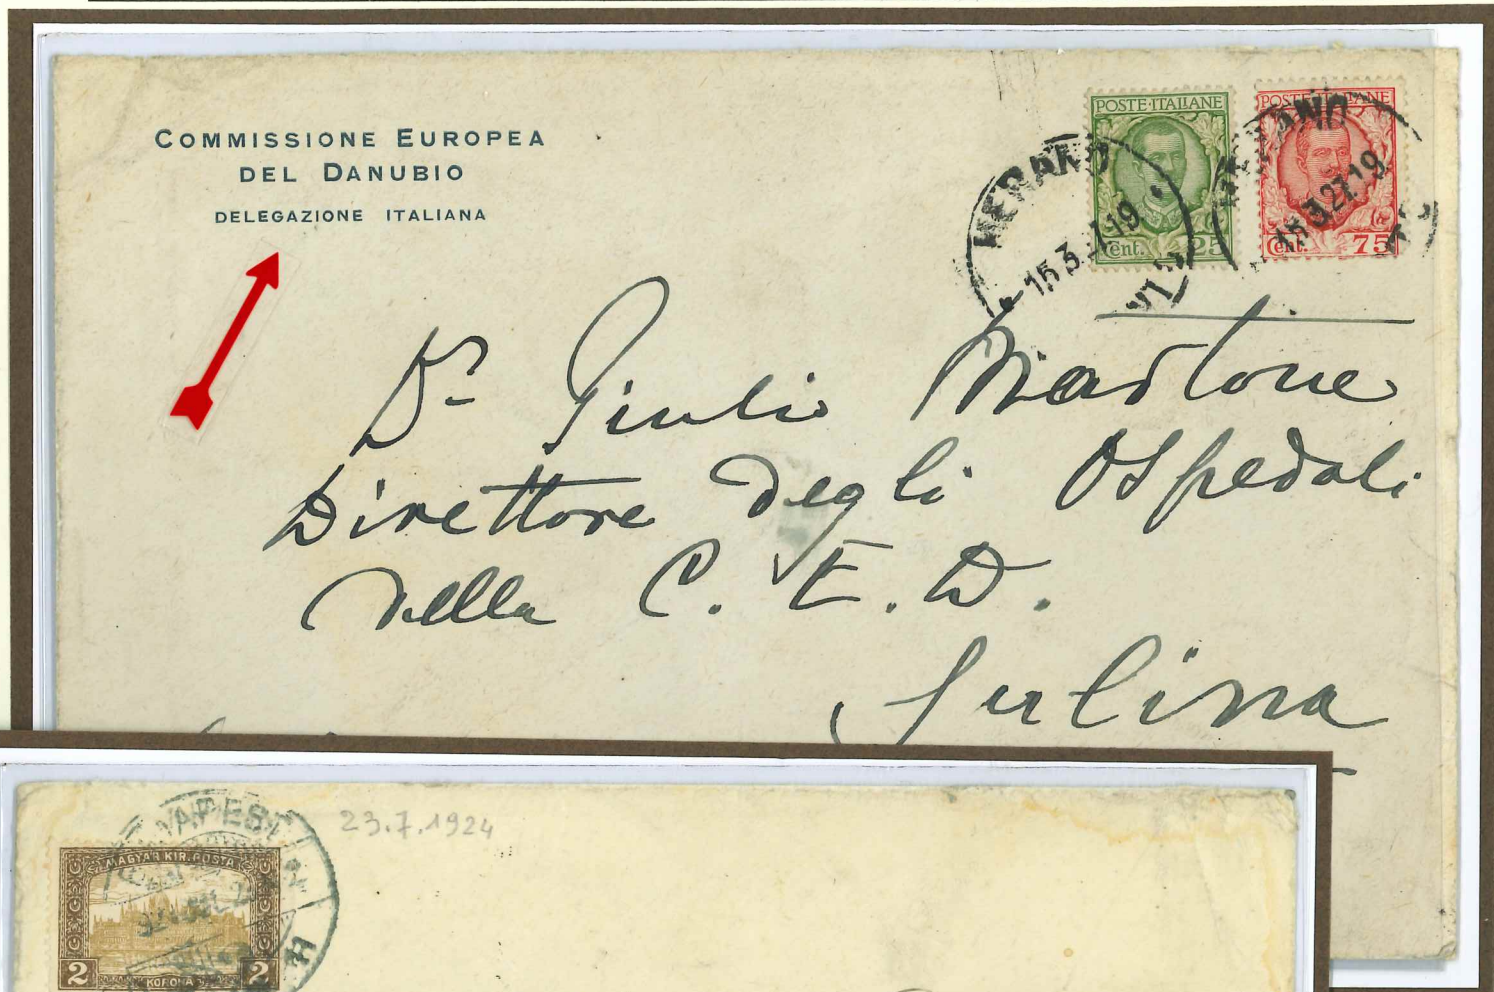 COMMISSIONE EUROPEA
DEL DANUBIO
DELEGAZIONE ITALIANA
POSTE·ITALIANE
Cent. 25
POSTE·ITALIANE
Cent. 75
MERANO
15.3. 19
MERANO
15.3.27.19
Dr Giulio Martone
Direttore degli Ospedali
della C. E. D.
Sulina
BUDAPEST
23.7.1924
MAGYAR KIR. POSTA
2 KORONA 2